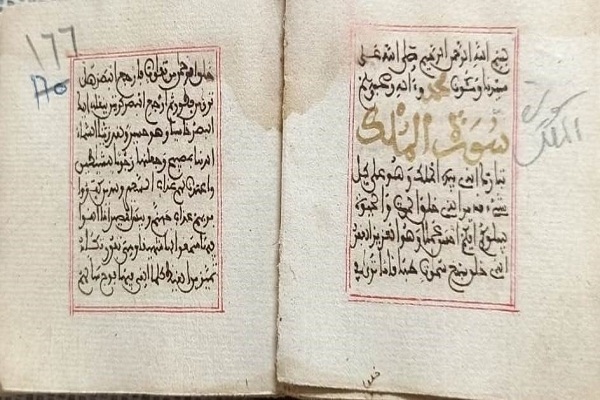 بسم الله الرحمن الرحيم صلى الله على
سيدنا ومولانا محمد وءاله وصحبه
سورة الملك
سورة الملك
تبارك الذي بيده الملك وهو على كل
شيء قدير الذي خلق الموت والحيوة
ليبلوكم أيكم أحسن عملا وهو العزيز الغفور
الذي خلق سبع سموت طباقا ما ترى في
خلق
١٦٦
خلق الرحمن من تفوت فارجع البصر هل
ترى من فطور ثم ارجع البصر كرتين ينقلب إليك
البصر خاسئا وهو حسير ولقد زينا السماء
الدنيا بمصبيح وجعلنها رجوما للشيطين
وأعتدنا لهم عذاب السعير وللذين كفروا
بربهم عذاب جهنم وبئس المصير إذا ألقوا
فيها سمعوا لها شهيقا وهي تفور تكاد
تميز من الغيظ كلما ألقي فيها فوج سألهم